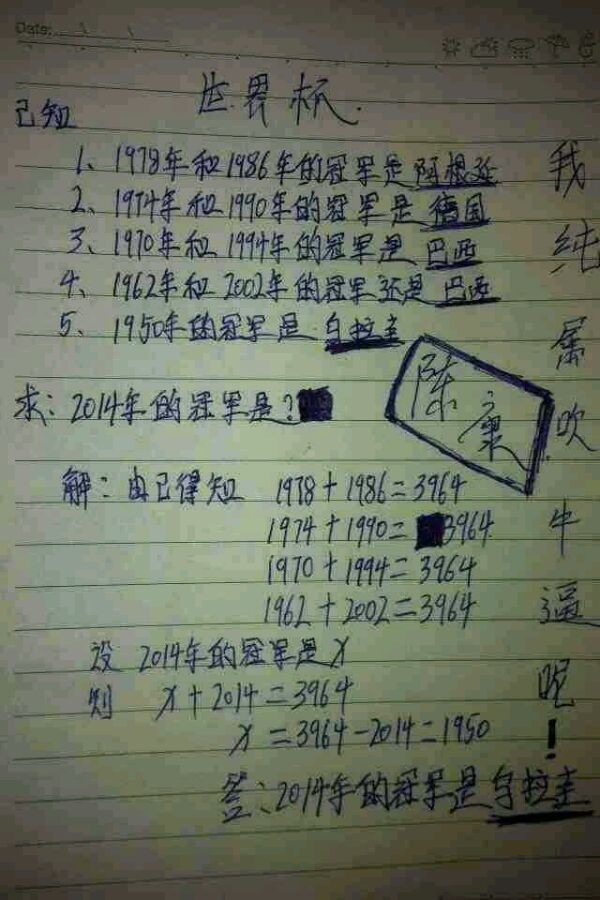 Date:
世界杯.
已知
1、1978年和1986年的冠军是阿根廷
2、1974年和1990年的冠军是德国
3、1970年和1994年的冠军是巴西
4、1962年和2002年的冠军还是巴西
5、1950年的冠军是乌拉圭
求：2014年的冠军是？
陈康
解：由已得知 1978+1986=3964
1974+1990=3964
1970+1994=3964
1962+2002=3964
设 2014年的冠军是X
则 X+2014=3964
X=3964-2014=1950
答：2014年的冠军是乌拉圭
我纯属吹牛逼呢！